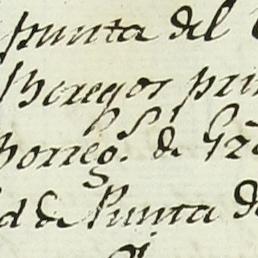 punta del
Boregos pri
borreg.s de Gra
d de Punta de